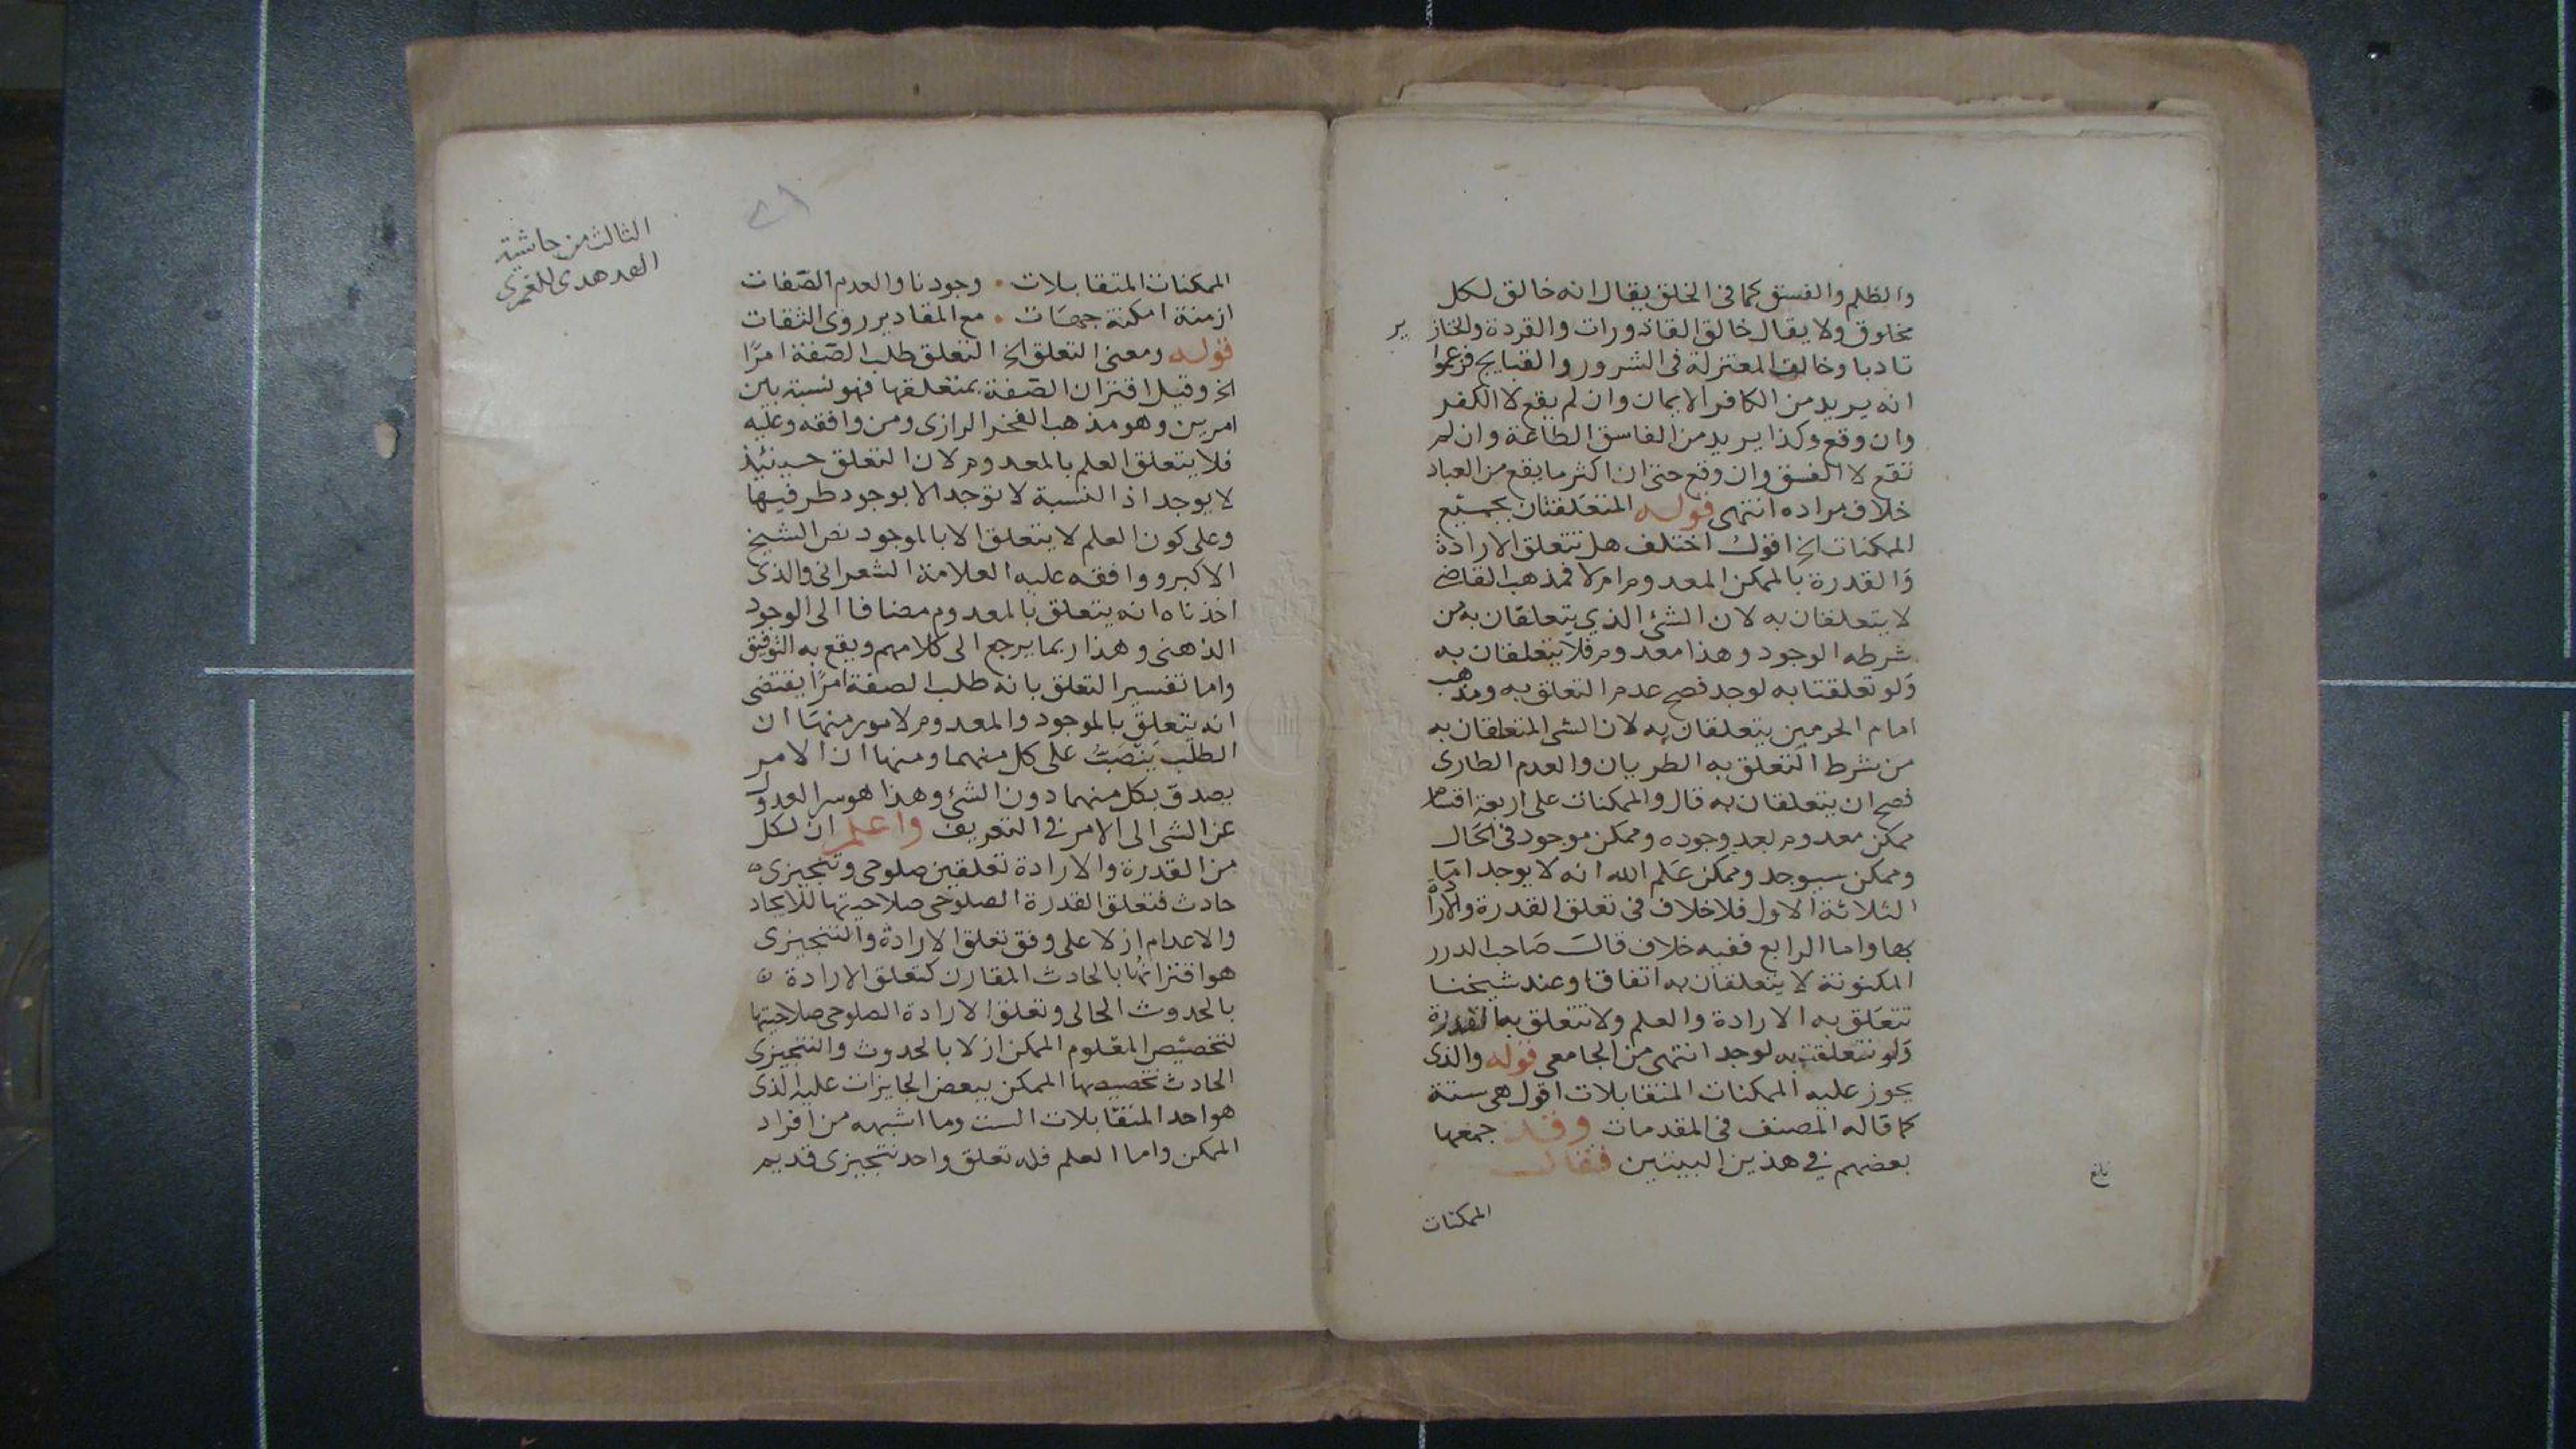 والظلم والفسق كما في الخلق يقال انه خالق لكل
مخلوق ولا يقال خالق القاذورات والقردة والخنازير
تادبا وخالف المعتزلة في الشرور والقبايح فزعموا
انه يريد من الكافر الايمان وان لم يقع لا الكفر
وان وقع وكذا يريد من الفاسق الطاعة وان لم
تقع لا الفسق وان وقع حتى ان اكثر ما يقع من العباد
خلاف مراده انتهى قوله المتعلقتان بجميع
الممكنات الخ اقول اختلف هل تتعلق الارادة
والقدرة بالممكن المعدوم ام لا فمذهب القاضي
لا يتعلقان به لان الشئ الذي يتعلقان به من
شرطه الوجود وهذا معدوم فلا يتعلقان به
ولو تعلقتا به لوجد فصح عدم التعلق به ومذهب
امام الحرمين يتعلقان به لان الشي المتعلقان به
من شرط التعلق به الطريان والعدم الطارى
فصح ان يتعلقان به قال والممكنات على اربعة اقسام
ممكن معدوم بعد وجوده وممكن موجود في الحال
وممكن سيوجد وممكن علم الله انه لا يوجد امّا
الثلاثة الاول فلا خلاف في تعلق القدرة والارادة
بها واما الرابع ففيه خلاف قال صاحب الدرر
المكنونة لا يتعلقان به اتفاقا وعند شيخنا
تتعلق به الارادة والعلم ولا تتعلق به القدرة
ولو تعلقت به لوجد انتهى من الجامعي قوله والذى
يجوز عليه الممكنات المتقابلات اقول هي ستة
كما قاله المصنف في المقدمات وقد جمعها
بعضهم في هذين البيتين فقال
بلغ
الممكنات
الثالث من حاشية
الهدهدى للغمرى
الممكنات المتقابلات • وجودنا والعدم الصفات
ازمنة امكنة جهات • مع المقادير روى الثقات
قوله ومعنى التعلق الخ التعلق طلب الصفة امرًا
الخ وقيل اقتران الصفة بمتعلقها فهو نسبة بين
امرين وهو مذهب الفخر الرازى ومن وافقه وعليه
فلا يتعلق العلم بالمعدوم لان التعلق حينئذ
لا يوجد اذ النسبة لا توجد الا بوجود طرفيها
وعلى كون العلم لا يتعلق الا بالموجود نص الشيخ
الاكبر ووافقه عليه العلامة الشعرانى والذى
اخذناه انه يتعلق بالمعدوم مضافا الى الوجود
الذهنى وهذا ربما يرجع الى كلامهم ويقع به التوفيق
واما تفسير التعلق بانه طلب الصفة امرًا يقتضى
انه يتعلق بالموجود والمعدوم لامور منها ان
الطلب ينصبّ على كل منهما ومنها ان الامر
يصدق بكل منهما دون الشئ وهذا هو سر العدول
عن الشى الى الامر في التعريف واعلم ان لكل
من القدرة والارادة تعلقين صلوحى وتنجيزى
حادث فتعلق القدرة الصلوحى صلاحيتها للايجاد
والاعدام ازلا على وفق تعلق الارادة والتنجيزى
هو اقترانها بالحادث المقارن كتعلق الارادة
بالحدوث الحالى وتعلق الارادة الصلوحى صلاحيتها
لتخصيص المعلوم الممكن ازلا بالحدوث والتنجيزى
الحادث تخصيصها الممكن ببعض الجايزات عليه الذى
هو احد المتقابلات الست وما اشبهه من افراد
الممكن واما العلم فله تعلق واحد تنجيزى قديم